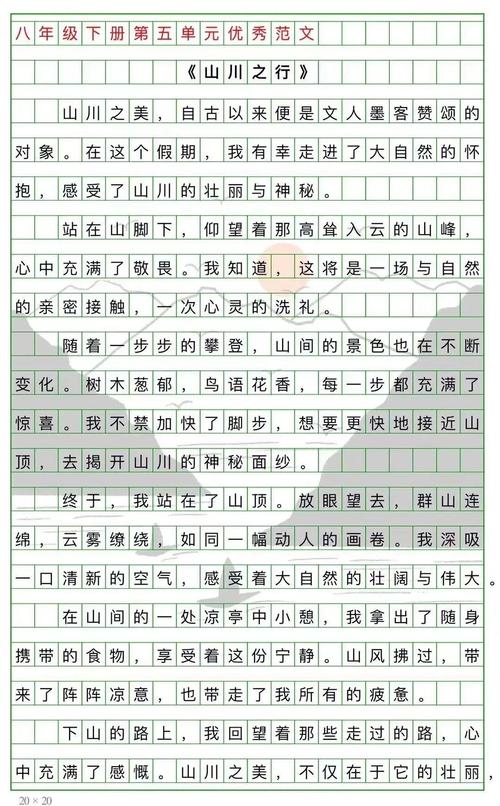 八年级下册第五单元优秀范文
《山川之行》
山川之美，自古以来便是文人墨客赞颂的
对象。在这个假期，我有幸走进了大自然的怀
抱，感受了山川的壮丽与神秘。
站在山脚下，仰望着那高耸入云的山峰，
心中充满了敬畏。我知道，这将是一场与自然
的亲密接触，一次心灵的洗礼。
随着一步步的攀登，山间的景色也在不断
变化。树木葱郁，鸟语花香，每一步都充满了
惊喜。我不禁加快了脚步，想要更快地接近山
顶，去揭开山川的神秘面纱。
终于，我站在了山顶。放眼望去，群山连
绵，云雾缭绕，如同一幅动人的画卷。我深吸
一口清新的空气，感受着大自然的壮阔与伟大。
在山间的一处凉亭中小憩，我拿出了随身
携带的食物，享受着这份宁静。山风拂过，带
来了阵阵凉意，也带走了我所有的疲惫。
下山的路上，我回望着那些走过的路，心
中充满了感慨。山川之美，不仅在于它的壮丽，
20×20